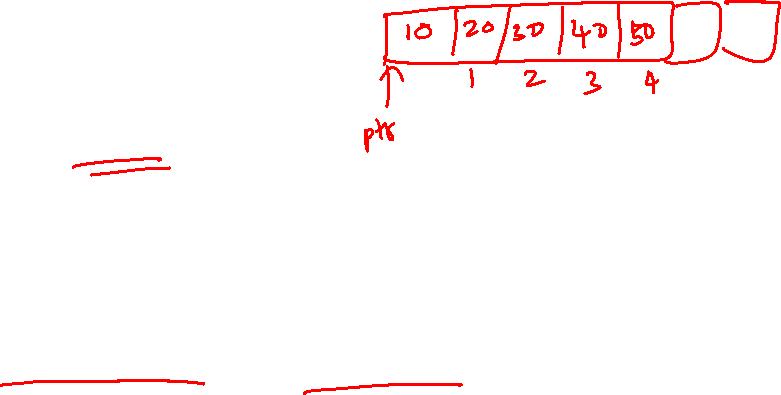 10 20 30 40 50
1 2 3 4
ptr